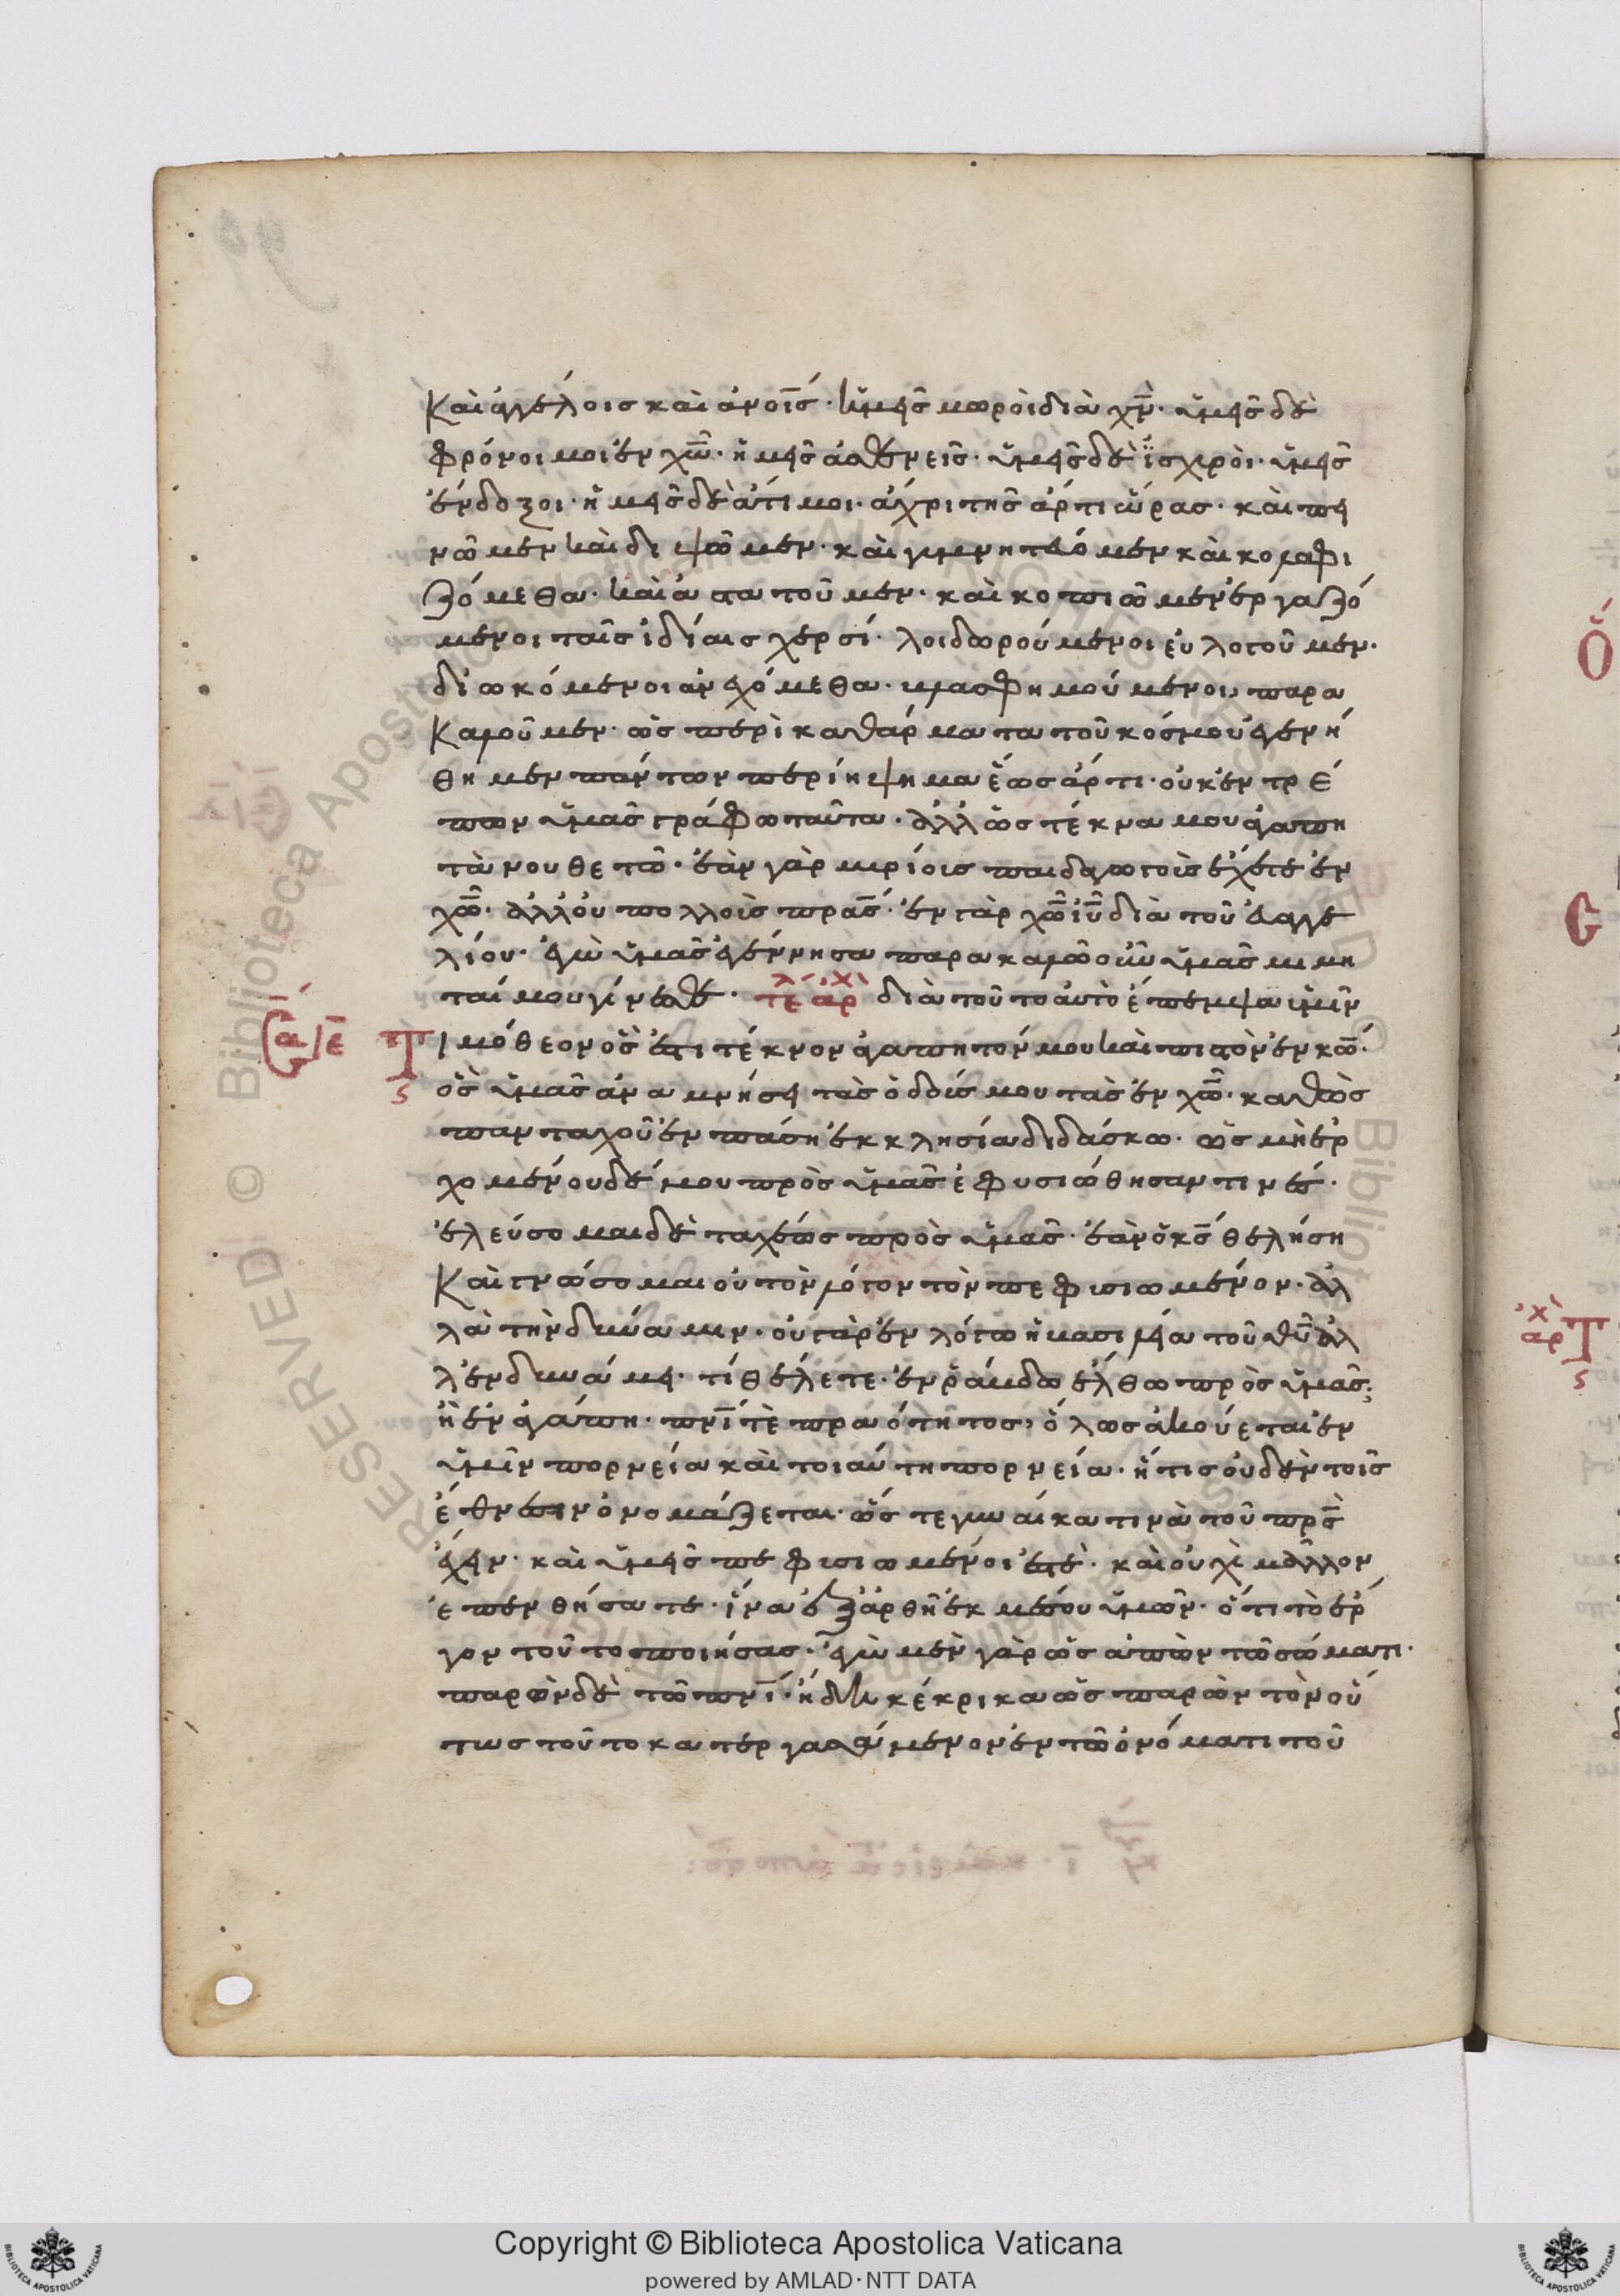 Καὶ ἀγγέλοις καὶ ἀνοῖς· ἡμεῖς μωροὶ διὰ χν· ὑμεῖς δὲ
φρόνοιμοι ἐν χω· ἡμεῖς ἀσθενεῖς· ὑμεῖς δὲ ἰσχυροὶ· ὑμεῖς
ἔνδοξοι· ἡμεῖς δὲ ἄτιμοι· ἄχρι τῆς ἄρτι ὥρας· καὶ πει
νῶμεν καὶ διψῶμεν· καὶ γυμνητεύομεν καὶ κολαφι
ζόμεθα· καὶ ἀστατοῦμεν· καὶ κοπιῶμεν ἐργαζό
μενοι ταῖς ἰδίαις χερσί· λοιδωρούμενοι εὐλογοῦμεν·
διωκόμενοι ἀνεχόμεθα· βλασφημούμενοι, παρα
Καλοῦμεν· ὡς περὶ καθάρματα τοῦ κόσμου ἐγενή
θημεν πάντων περίηψημα ἕως ἄρτι· οὐκ ἐντρέ
πων ὑμᾶς γράφω ταῦτα· ἀλλ ὡς τέκνα μου ἀγαπη
τὰ νουθετῶ· ἐὰν γὰρ μυρίοις παιδαγωγοὺς ἔχητε ἐν
χω· ἀλλ οὐ πολλοὺς πρας· ἐν γὰρ χω ιυ διὰ τοῦ εὐαγγε
λίου· ἐγὼ ὑμᾶς ἐγέννησα παρακαλῶ οὖν ὑμᾶς μιμη
ταί μου γίνεσθε· τέλ ἀρχ διὰ τοῦτο αὐτὸ ἔπεμψα ὑμῖν
Τιμόθεον ὅς ἐστι τέκνον ἀγαπητόν μου καὶ πιστὸν ἐν κω·
ὃς ὑμᾶς ἀναμνήσει τὰς ὁδούς μου τὰς ἐν χω· καθὼς
πανταχοῦ ἐν πάσῃ ἐκκλησία διδάσκω· ὡς μὴ ἐρ
χομένου δέ μου πρὸς ὑμᾶς ἐφυσιώθησαν τινές·
ἐλεύσομαι δὲ ταχέως πρὸς ὑμᾶς· ἐὰν ὁ κς θελήση
Καὶ γνώσομαι οὐ τὸν λόγον τὸν πεφυσιωμένον· ἀλ
λὰ τὴν δύναμιν· οὐ γὰρ ἐν λόγω ἡ βασιλεία τοῦ θυ ἀλ
λ ἐν δυνάμει· τί θέλετε· ἐν ῥάβδω ἔλθω πρὸς ὑμᾶς;
ἢ ἐν ἀγάπη· πνί τὲ πραότητος, ὅλως ἀκούεται ἐν
ὑμῖν πορνεία καὶ τοιαύτη πορνεία· ἥτις οὐδὲν τοῖς
ἔθνεσιν ὀνομάζεται· ὥστε γυναίκα τινὰ τοῦ πρς
ἔχειν· καὶ ὑμεῖς πεφυσιωμένοι ἐστὲ· καὶ οὐχὶ μᾶλλον
ἐπενθήσατε· ἵνα ἐξάρθη ἐκ μέσου ὑμῶν· ὁ τὶ τὸ ἔρ
γον τοῦτο ποιήσας· ἐγὼ μὲν γὰρ ὡς ἀπὼν τῶ σώματι·
παρὼν δὲ τῶ πνί· ἤδη κέκρικα ὡς παρὼν τὸν οὕ
τως τοῦτο κατεργασάμενον ἐν τῶ ὀνόματι τοῦ
Copyright © Biblioteca Apostolica Vaticana
powered by AMLAD·NTT DATA